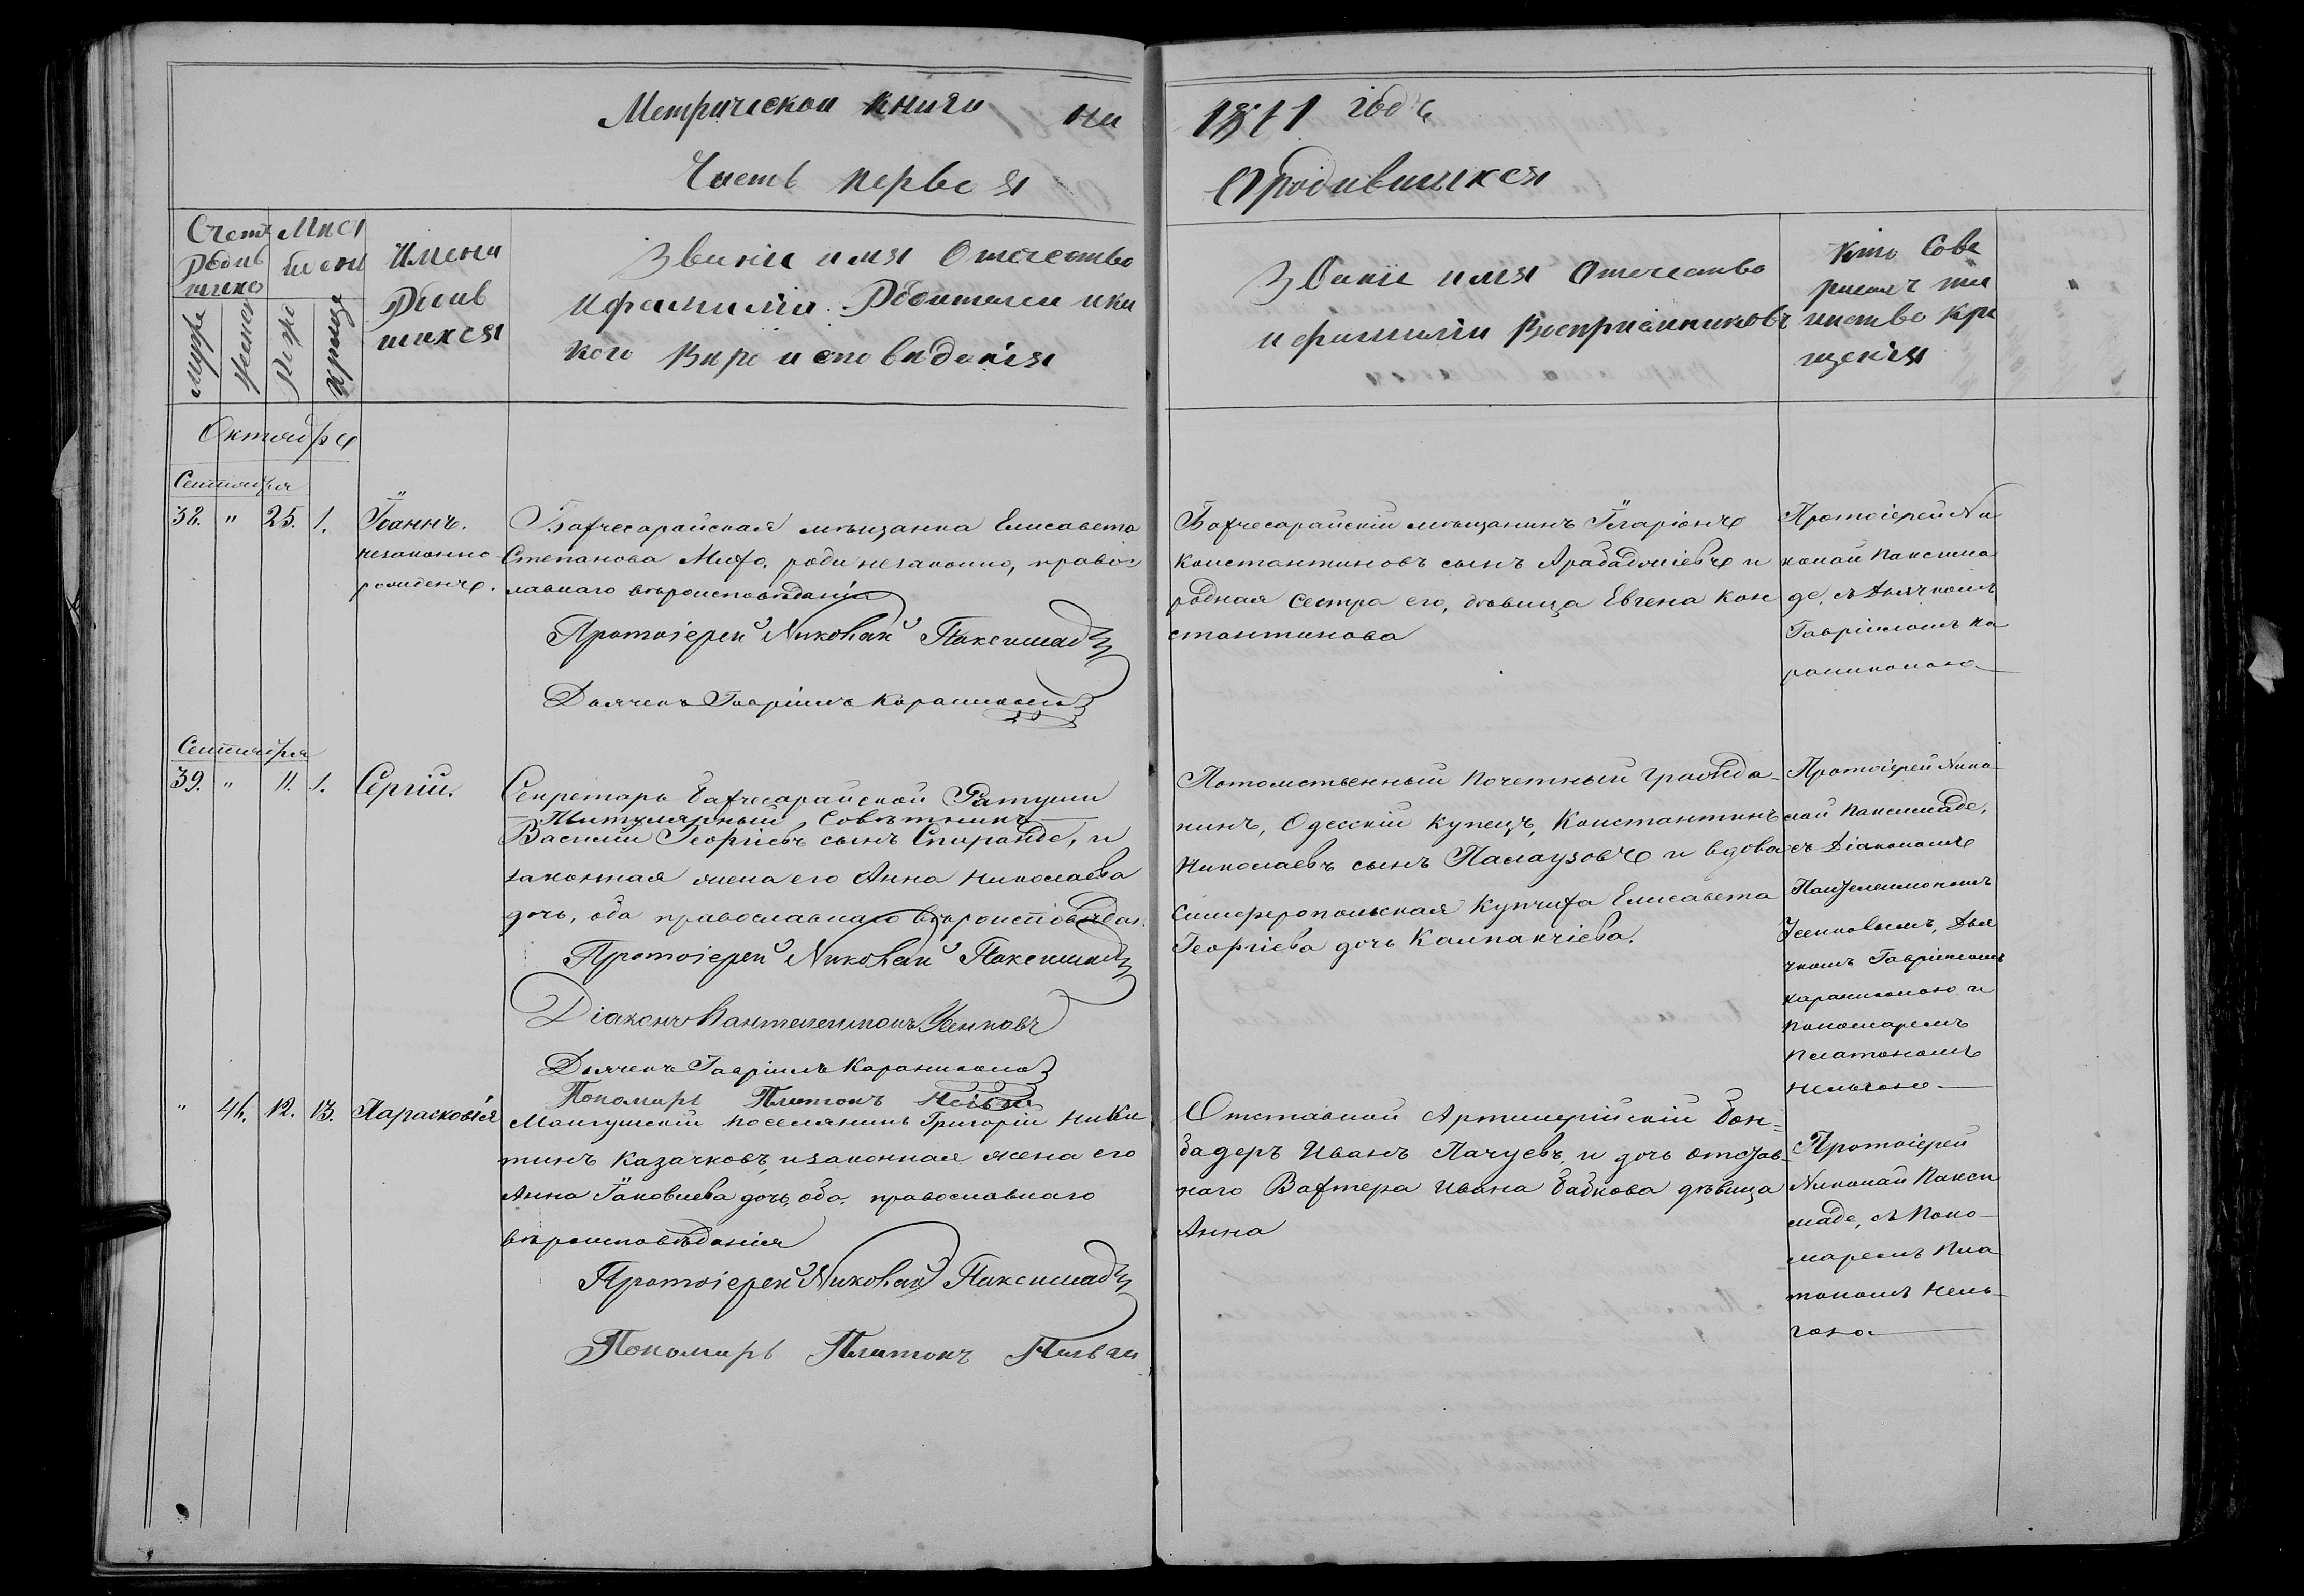 Метрической книги на 1871 годъ
Часть первая О родившихся
Счетъ родившихся
Мѣсяцъ и день
Имена родившихся
Званіе имя Отечество
и фамилія Родителей и ка
кого Вѣроисповѣданія
Званіе имя Отечество
и фамилія Воспріемниковъ
Кто Сове
ршалъ таи
нство Кре
щенія
Октябрь
Сентября
38. " 25. 1. Іоаннъ.
незаконно
рожденъ.
Бахчесарайская мѣщанка Елисавета
Степанова родила незаконно, правос
лавнаго вѣроисповѣданія
Протоіерей Николай Паксимади
Дьячекъ Гавріилъ
Бахчесарайскій мѣщанинъ Иларіонъ
Константиновъ сынъ Арабаджіевъ и
родная сестра его, дѣвица Евгена Кон
стантинова
Протоіерей Ни
колай Паксима
де, съ Дьячкомъ
Гавріиломъ Ка
Сентября
39. " 11. 1. Сергій.
Секретарь Бахчесарайской Ратуши
Титулярный Совѣтникъ
Василій Георгіевъ сынъ Спиранде, и
законная жена его Анна Николаева
дочь, оба православнаго вѣроисповѣдан.
Протоіерей Николай Паксимади
Діаконъ Пантелеимонъ
Дьячекъ Гавріилъ
Пономарь Платонъ
Потомственный почетный гражда-
нинъ, Одесскій купецъ, Константинъ
Николаевъ сынъ Палаузовъ и вдова
Симферопольская Купчиха Елисавета
Георгіева дочь Калпакчіева.
Протоіерей Нико-
лай Паксимаде,
съ Діакономъ
Пантелеимономъ
Дья
чкомъ Гавріиломъ
и
пономаремъ
Платономъ
" 41. 12. 13. Парасковія
Мангушскій поселянинъ Григорій Ники
тинъ Казачковъ, и законная жена его
Анна Іаковлева дочь, оба православнаго
вѣроисповѣданія
Протоіерей Николай Паксимади
Пономарь Платонъ
Отставной Артилерійскій Бон-
бадеръ Иванъ Пачуевъ, и дочь отстав-
наго Вахтера Ивана Бабкова дѣвица
Анна
Протоіерей
Николай Пакси
маде, съ Поно-
маремъ Пла
тономъ